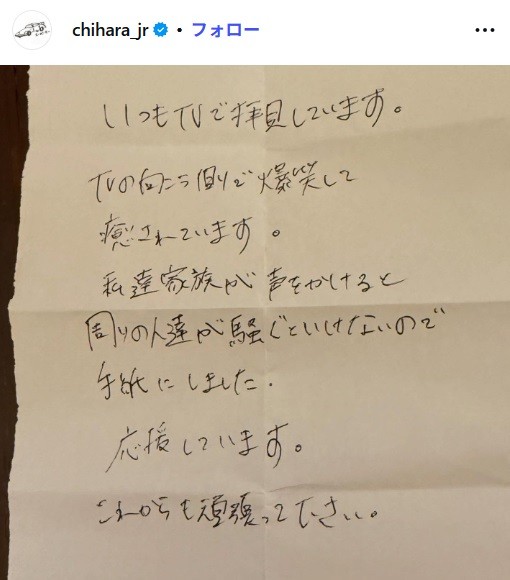 chihara_jr • フォロー
いつもTVで拝見しています。
TVの向こう側で爆笑して
癒されています。
私達家族が声をかけると
周りの人達が騒ぐといけないので
手紙にしました.
応援しています。
これからも頑張って下さい。